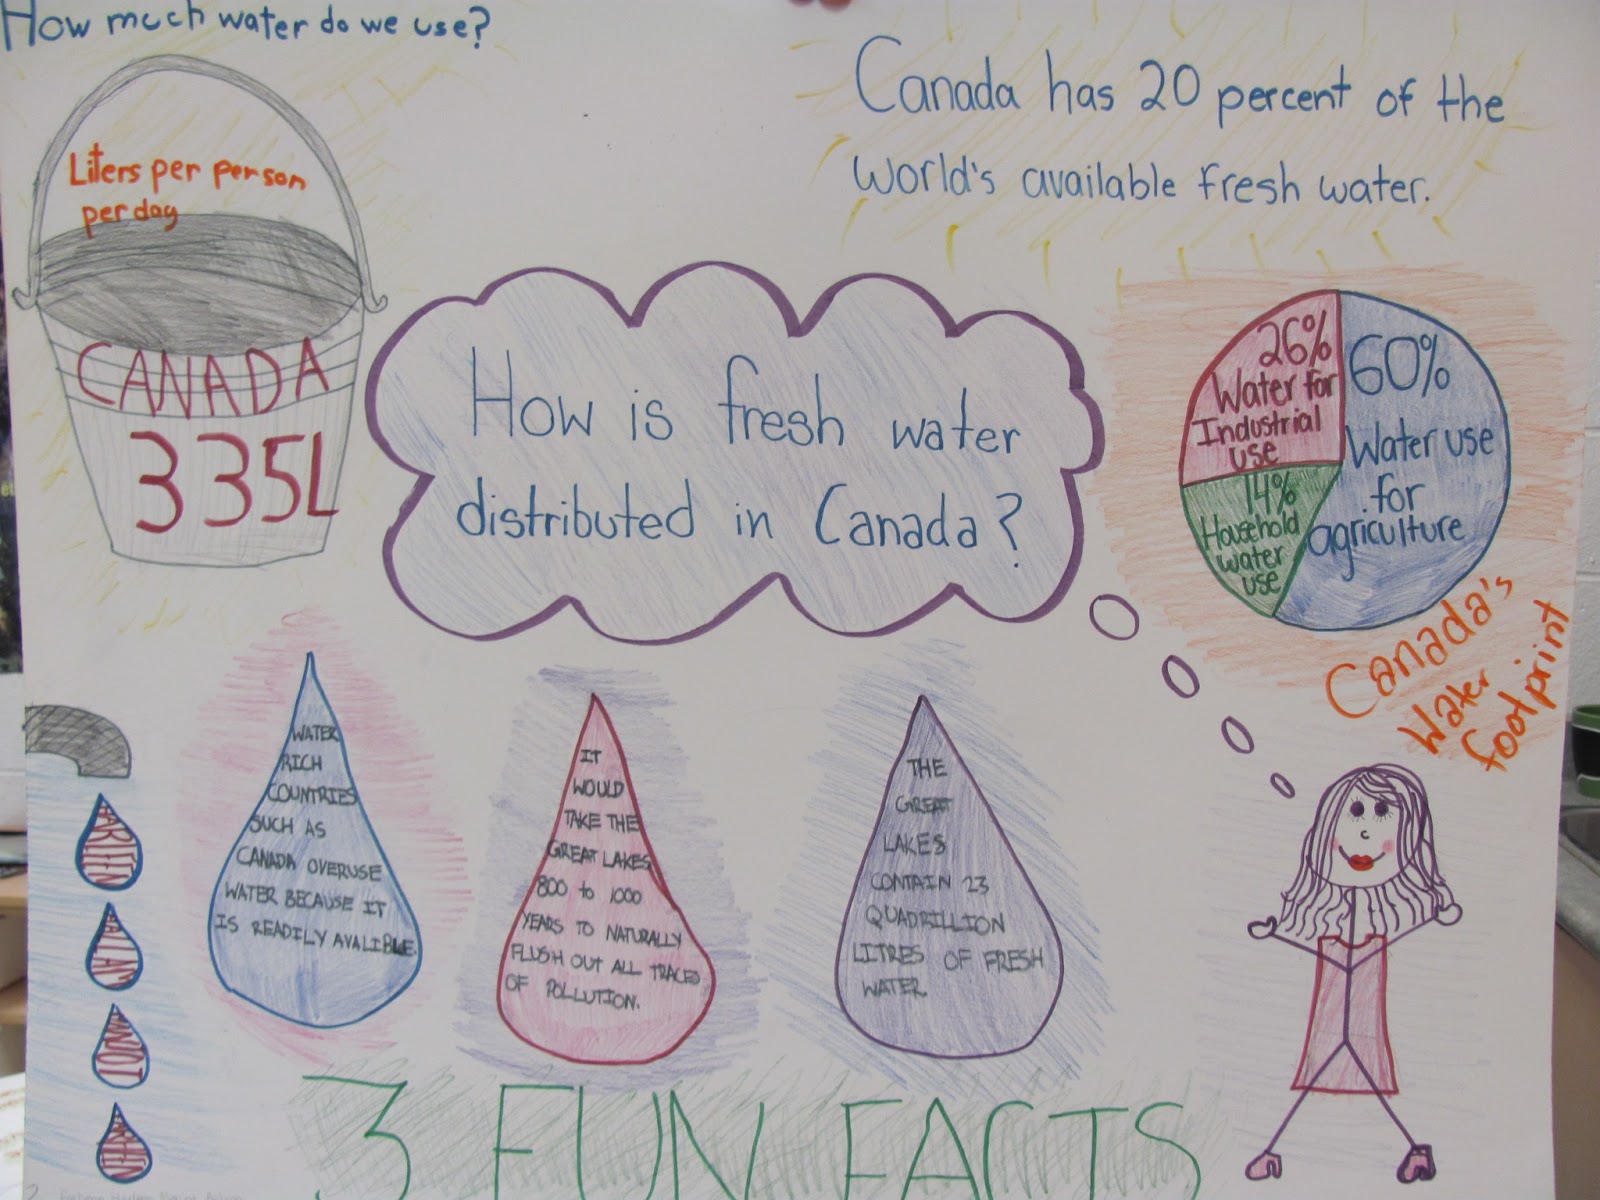 How much water do we use?
Liters per person
per day
CANADA
335L
Canada has 20 percent of the
world's available fresh water.
How is fresh water
distributed in Canada?
26%
Water for
Industrial
use
60%
Water use
for
agriculture
14%
Household
water
use
Canada's
Water
footprint
WATER
RICH
COUNTRIES
SUCH AS
CANADA OVERUSE
WATER BECAUSE IT
IS READILY AVALIBLE.
IT
WOULD
TAKE THE
GREAT LAKES
800 to 1000
YEARS TO NATURALLY
FLUSH OUT ALL TRACES
OF POLLUTION.
THE
GREAT
LAKES
CONTAIN 23
QUADRILLION
LITRES OF FRESH
WATER
3 FUN FACTS